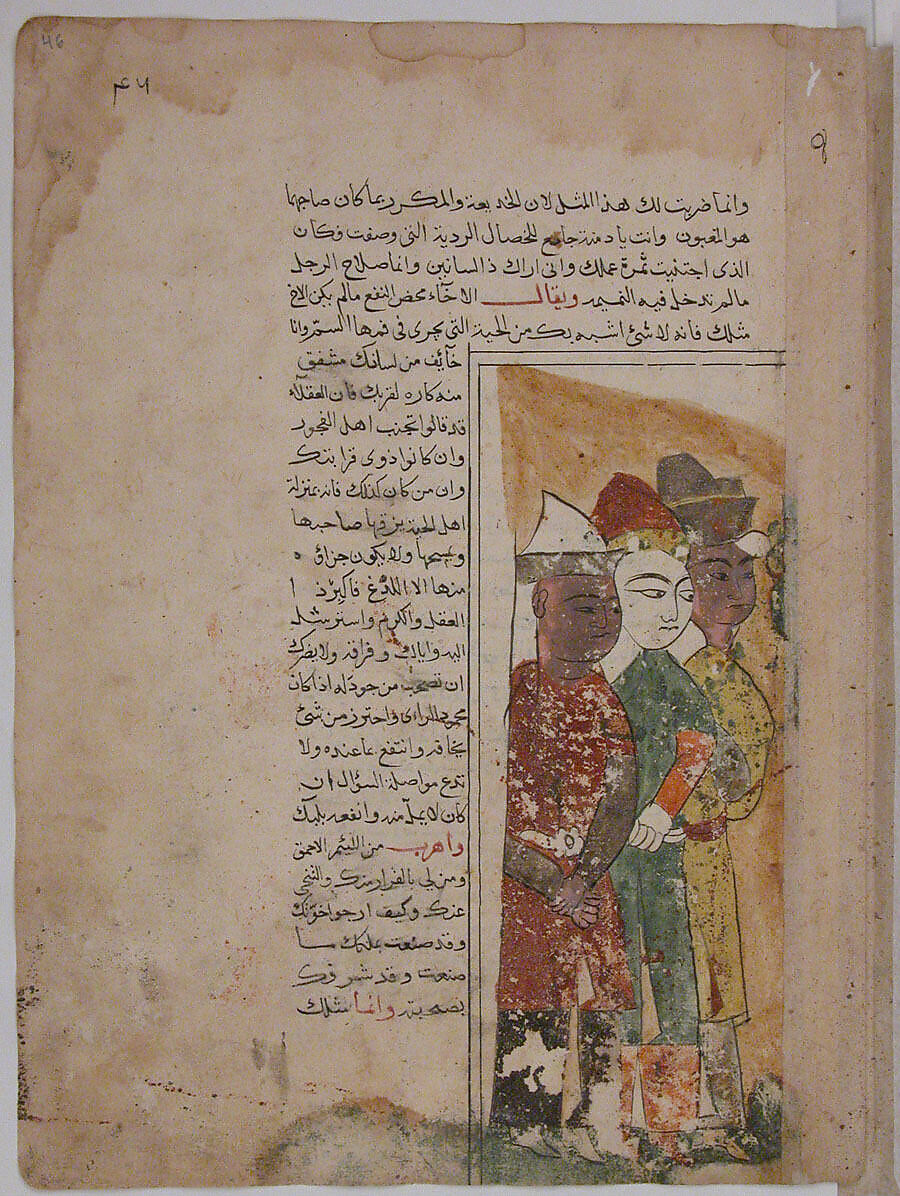 46
۴۶
٩
وانما ضربت لك هذا المثل لان الخديعة والمكر ربما كان صاحبهما
هو المغبون وانت يا دمنة جامع للخصال الردية التى وصفت فكان
الذى اجتنيت ثمرة عملك وانى اراك ذا لسانين وانما صلاح الرجل
مالم تدخل فيه النميمه ويقال الاخآء محض النفع مالم يكن الاخ
مثلك فانه لا شئ اشبه بك من الحية التى يجرى فى فمها السمّ وانا
خآئف من لسانك مشفق
منه كاره لقربك فان العقلآء
قد قالوا تجنب اهل الفجور
وان كانوا ذوى قرابتك
وان من كان كذلك فانه بمنزلة
اهل الحية يزقها صاحبها
ويمسحها ولا يكون جزاؤه
منها الا اللدغ فاكبر ذا
العقل والكرم واسترسل
اليه واياك وفراقه ولا يضرك
ان تصحب من جود له اذا كان
محمود الراى واحترز من شئ
وانتفع بما عنده ولا
تدع مواصلة السؤال ان
كان لا منه وانفعه بلبّك
واهرب من اللئيم الاحمق
ومن لى بالفرار منك والتنحى
عنك وكيف ارجوا اخوتك
وقد صنعت بملك ما
صنعت وقد شرفك
بصحبته وانما مثلك